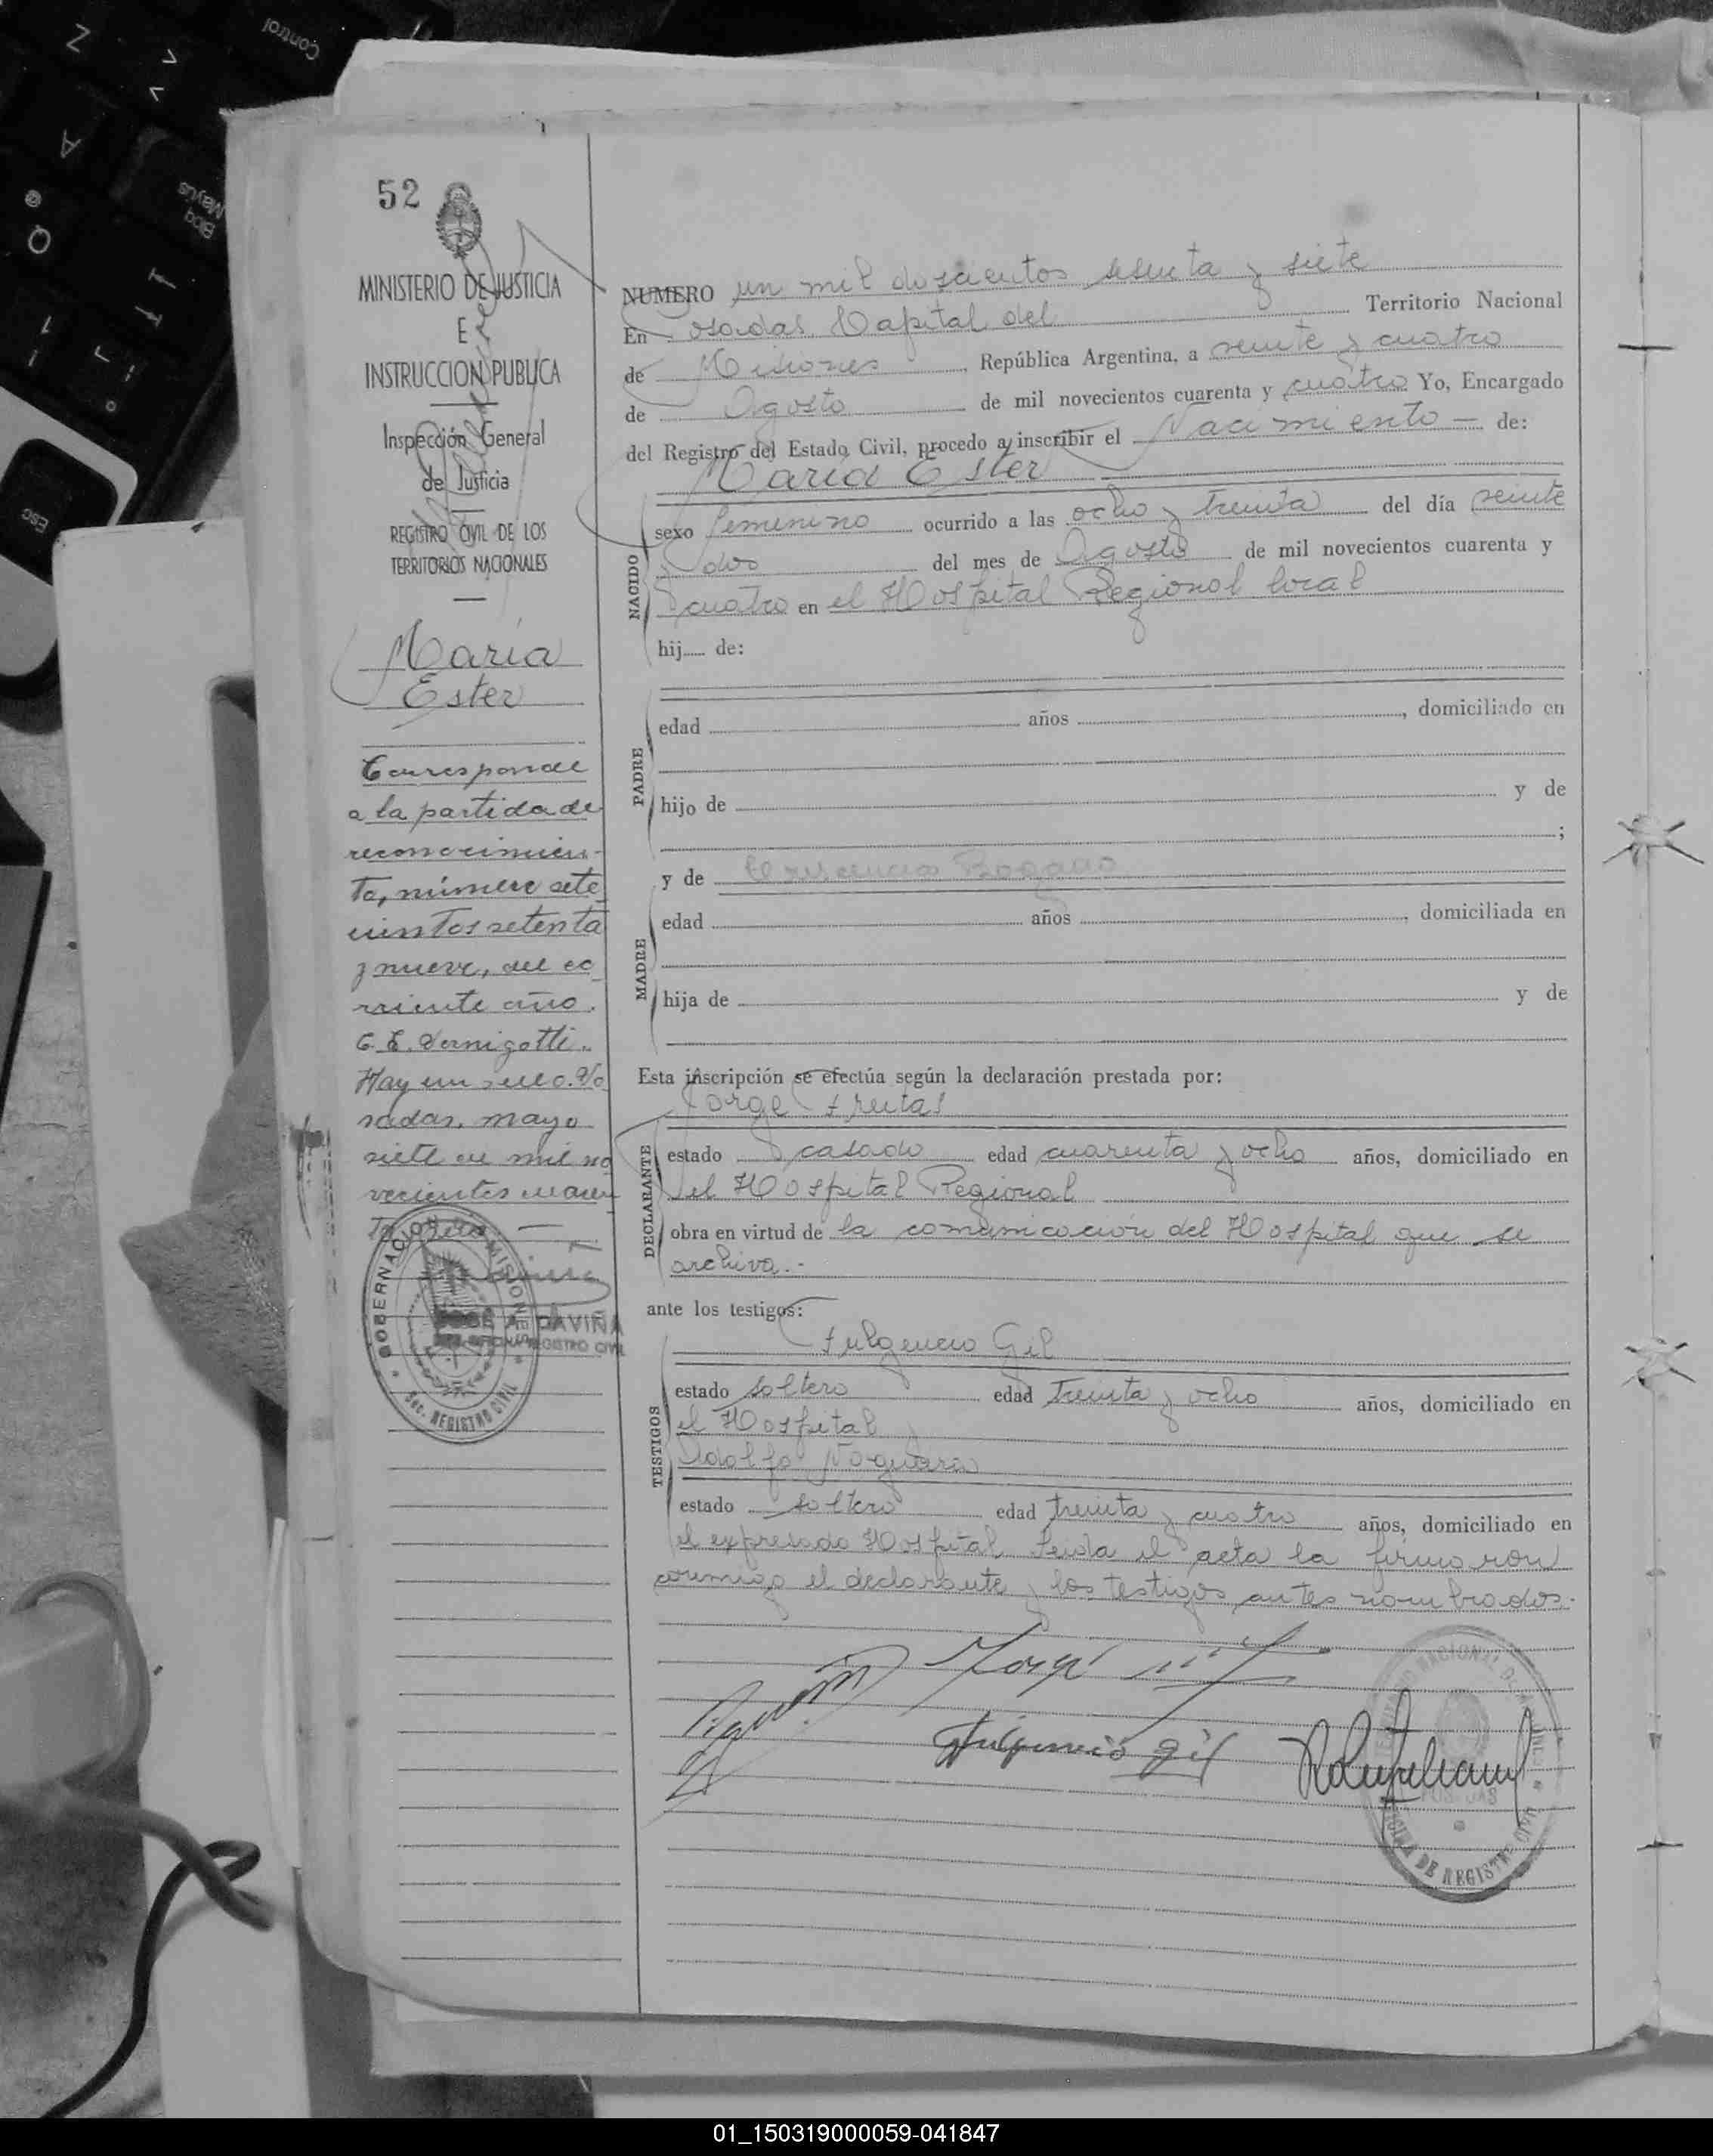 52
MINISTERIO DE JUSTICIA
E
INSTRUCCION PUBLICA
Inspección General
de Justicia
REGISTRO CIVIL DE LOS
TERRITORIOS NACIONALES
María
Ester
Corresponde
a la partida de
reconocimien-
to, número sete
cientos setenta
y nueve, del co
rriente año.
C. E. Vernigotti.
Hay un sello. Po
sadas, mayo
siete de mil no
vecientos cuaren
GOBERNACION MISIONES
Sec. REGISTRO CIVIL
JOSÉ A. DAVIÑA
REGISTRO CIVIL
NUMERO un mil doscientos sesenta y siete
En Posadas Capital del Territorio Nacional
de Misiones, República Argentina, a veinte y cuatro
de Agosto de mil novecientos cuarenta y cuatro Yo, Encargado
del Registro del Estado Civil, procedo a inscribir el Nacimiento — de:
María Ester
NACIDO
sexo femenino ocurrido a las ocho y treinta del día veinte
y dos del mes de Agosto de mil novecientos cuarenta y
cuatro en el Hospital Regional local
hij..... de:
PADRE
edad años , domiciliado en
hijo de y de
;
y de Bogado
MADRE
edad años , domiciliada en
hija de y de
Esta inscripción se efectúa según la declaración prestada por:
Jorge Freitas
DECLARANTE
estado casado edad cuarenta y ocho años, domiciliado en
el Hospital Regional
obra en virtud de la comunicación del Hospital que se
archiva.-
ante los testigos:
Fulgencio Gil
TESTIGOS
estado soltero edad treinta y ocho años, domiciliado en
el Hospital
Adolfo
estado soltero edad treinta y cuatro años, domiciliado en
el expresado Hospital Leida el acta la firmaron
conmigo el declarante y los testigos antes nombrados.-
Jorge
Fulgencio Gil
POSADAS
OFICINA DE REGISTRO CIVIL
01_150319000059-041847